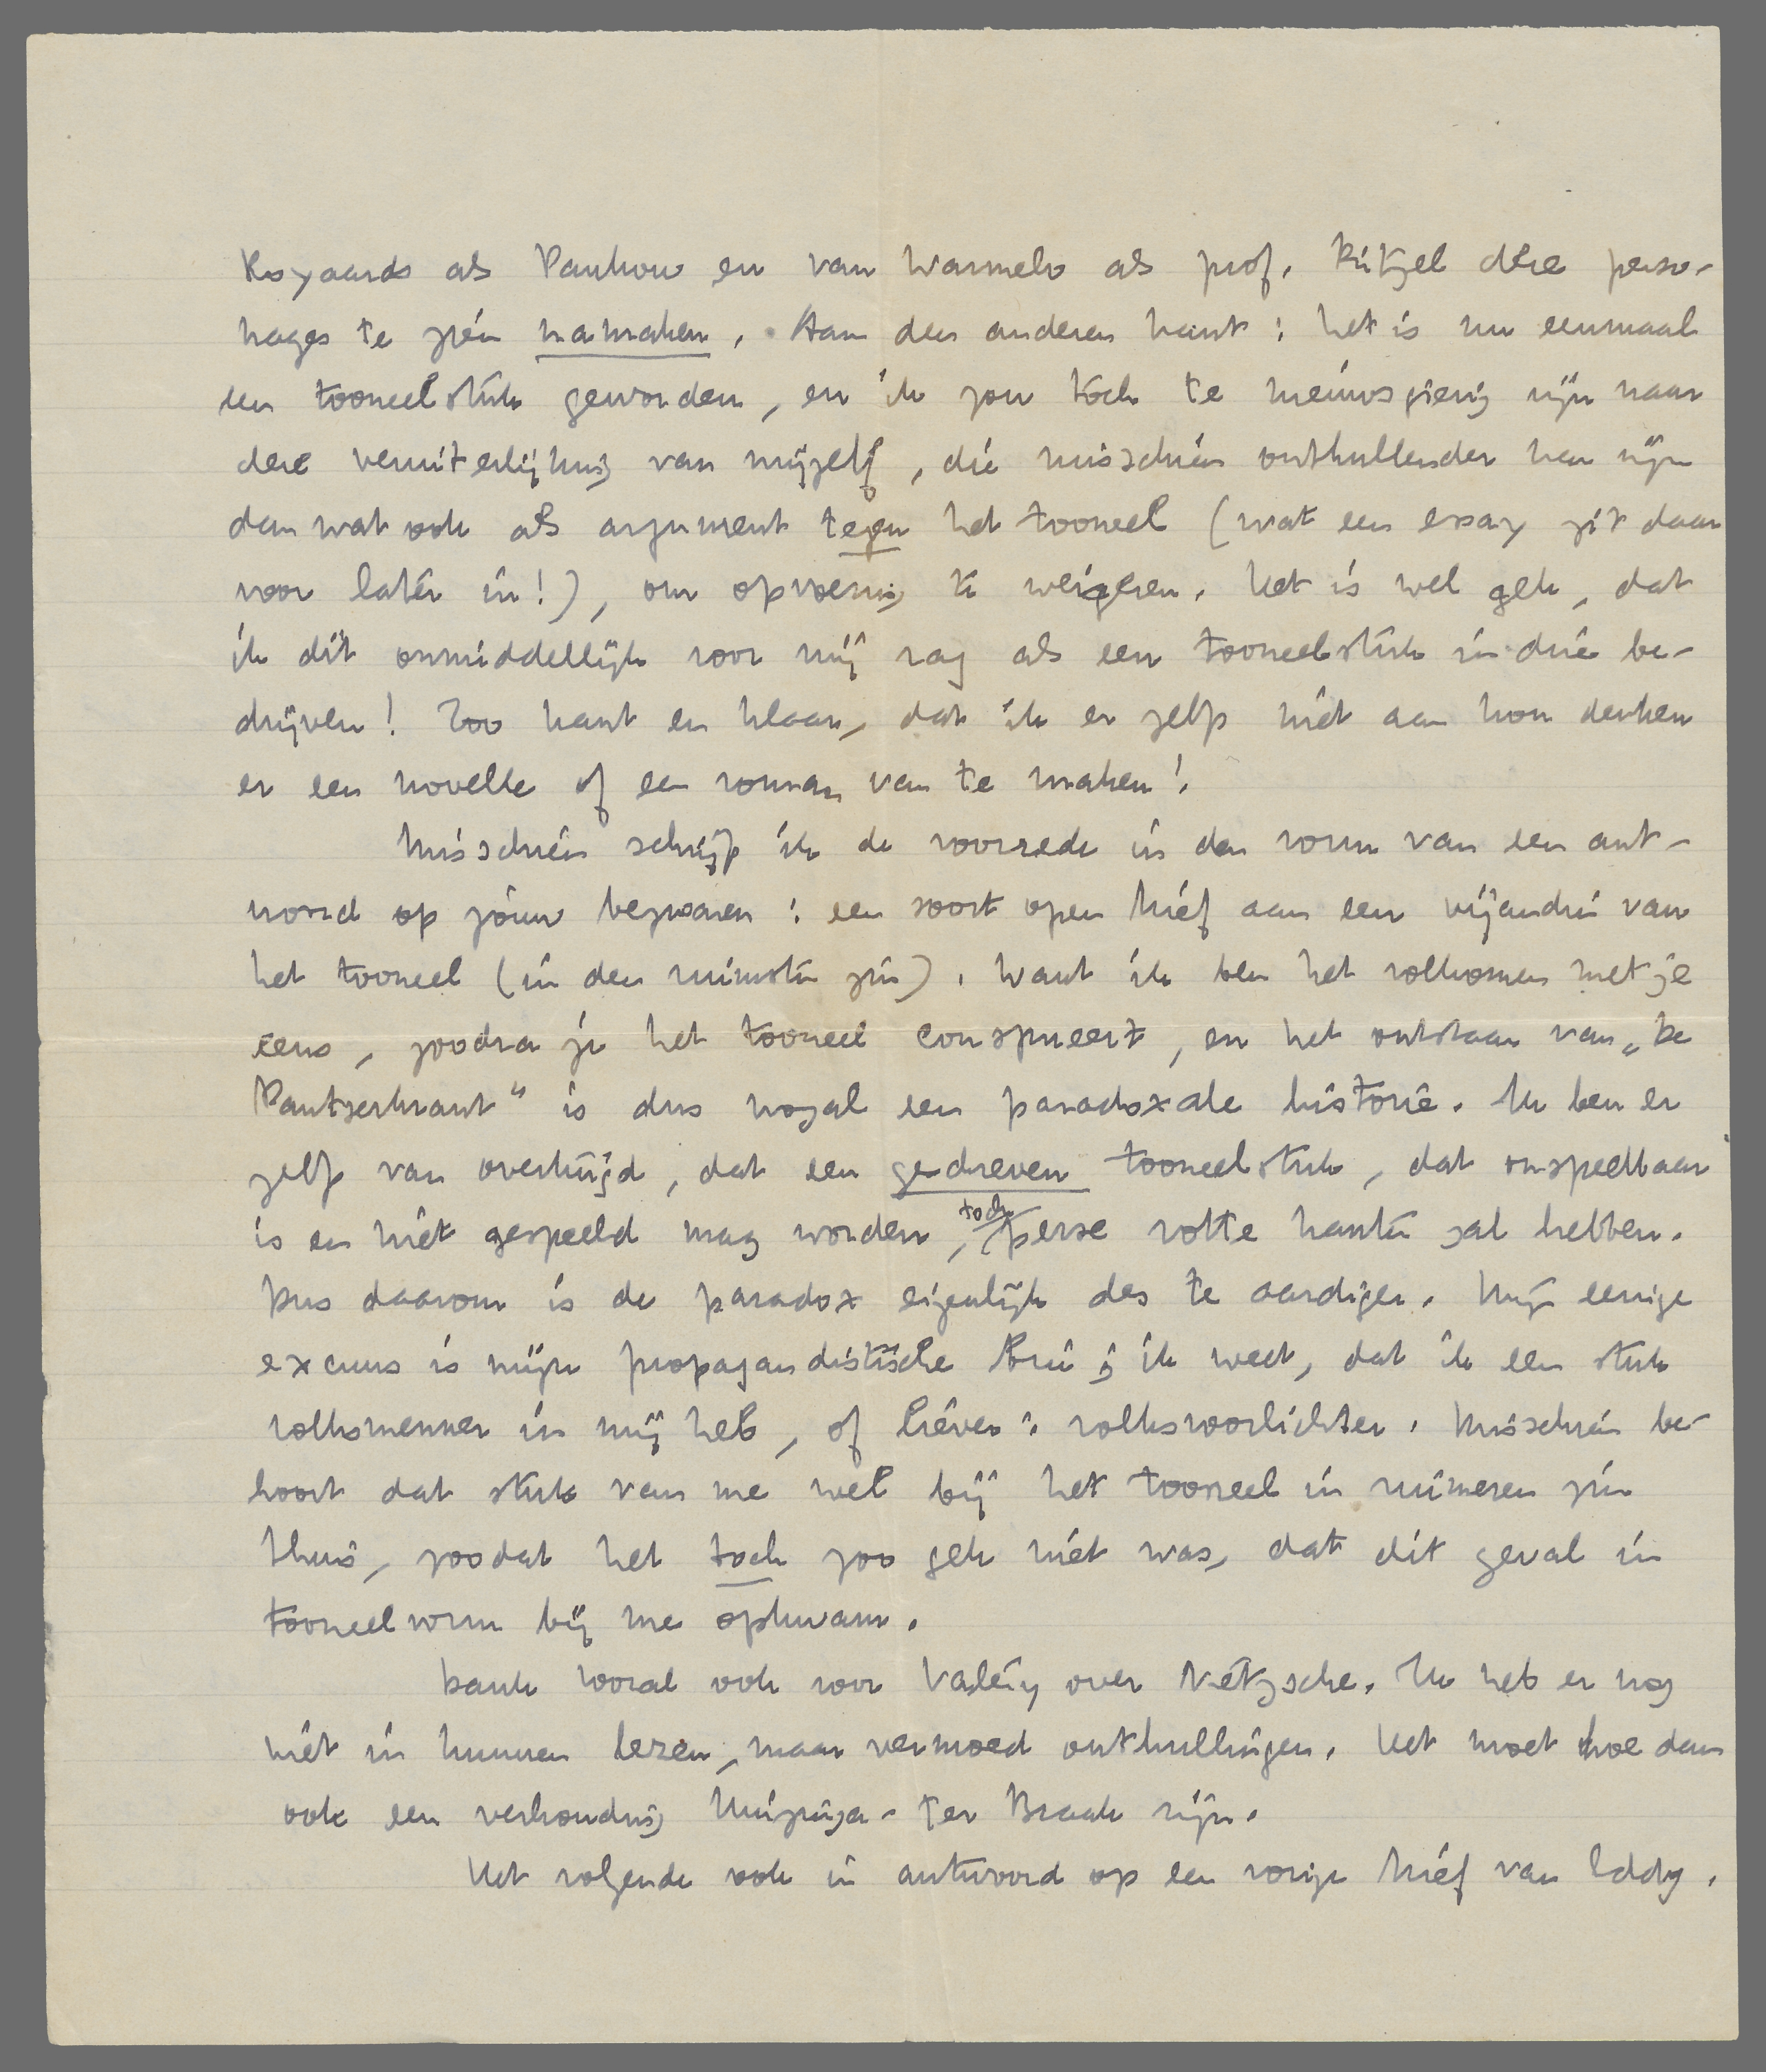 Royaards als Pankow en van Warmelo als prof. Ritzel deze perso-
nages te zien namaken. Aan den anderen kant: het is nu eenmaal
een tooneelstuk geworden, en ik zou toch te nieuwsgierig zijn naar
deze veruiterlijking van mijzelf, die misschien onthullender kan zijn
dan wat ook als argument tegen het tooneel (wat een essay zit daar
voor later in!), om opvoering te weigeren. Het is wel gek, dat
ik dit onmiddellijk voor mij zag als een tooneelstuk in drie be-
drijven! Zoo kant en klaar, dat ik er zelfs niet aan kon denken
er een novelle of een roman van te maken!
Misschien schrijf ik de voorrede in den vorm van een ant-
woord op jouw bezwaren: een soort open brief aan een vijandin van
het tooneel (in den ruimsten zin). Want ik ben het volkomen met je
eens, zoodra je het tooneel conspueert, en het ontstaan van „De
Pantserkrant" is dus nogal een paradoxale historie. Ik ben er
zelf van overtuigd, dat een gedreven tooneelstuk, dat onspeelbaar
is en niet gespeeld mag worden, toch perse rotte kanten zal hebben.
Dus daarom is de paradox eigenlijk des te aardiger. Mijn eenige
excuus is mijn propagandistische trui; ik weet, dat ik een stuk
volksmenner in mij heb, of liever: volksvoorlichter. Misschien be-
hoort dat stuk van me wel bij het tooneel in ruimeren zin
thuis, zoodat het toch zoo gek niet was, dat dit geval in
tooneelvorm bij me opkwam.
Dank vooral ook voor Valéry over Nietzsche. Ik heb er nog
niet in kunnen lezen, maar vermoed onthullingen. Het moet hoe dan
ook een verhouding Huizinga-ter Braak zijn.
Het volgende ook in antwoord op een vorige brief van Eddy.